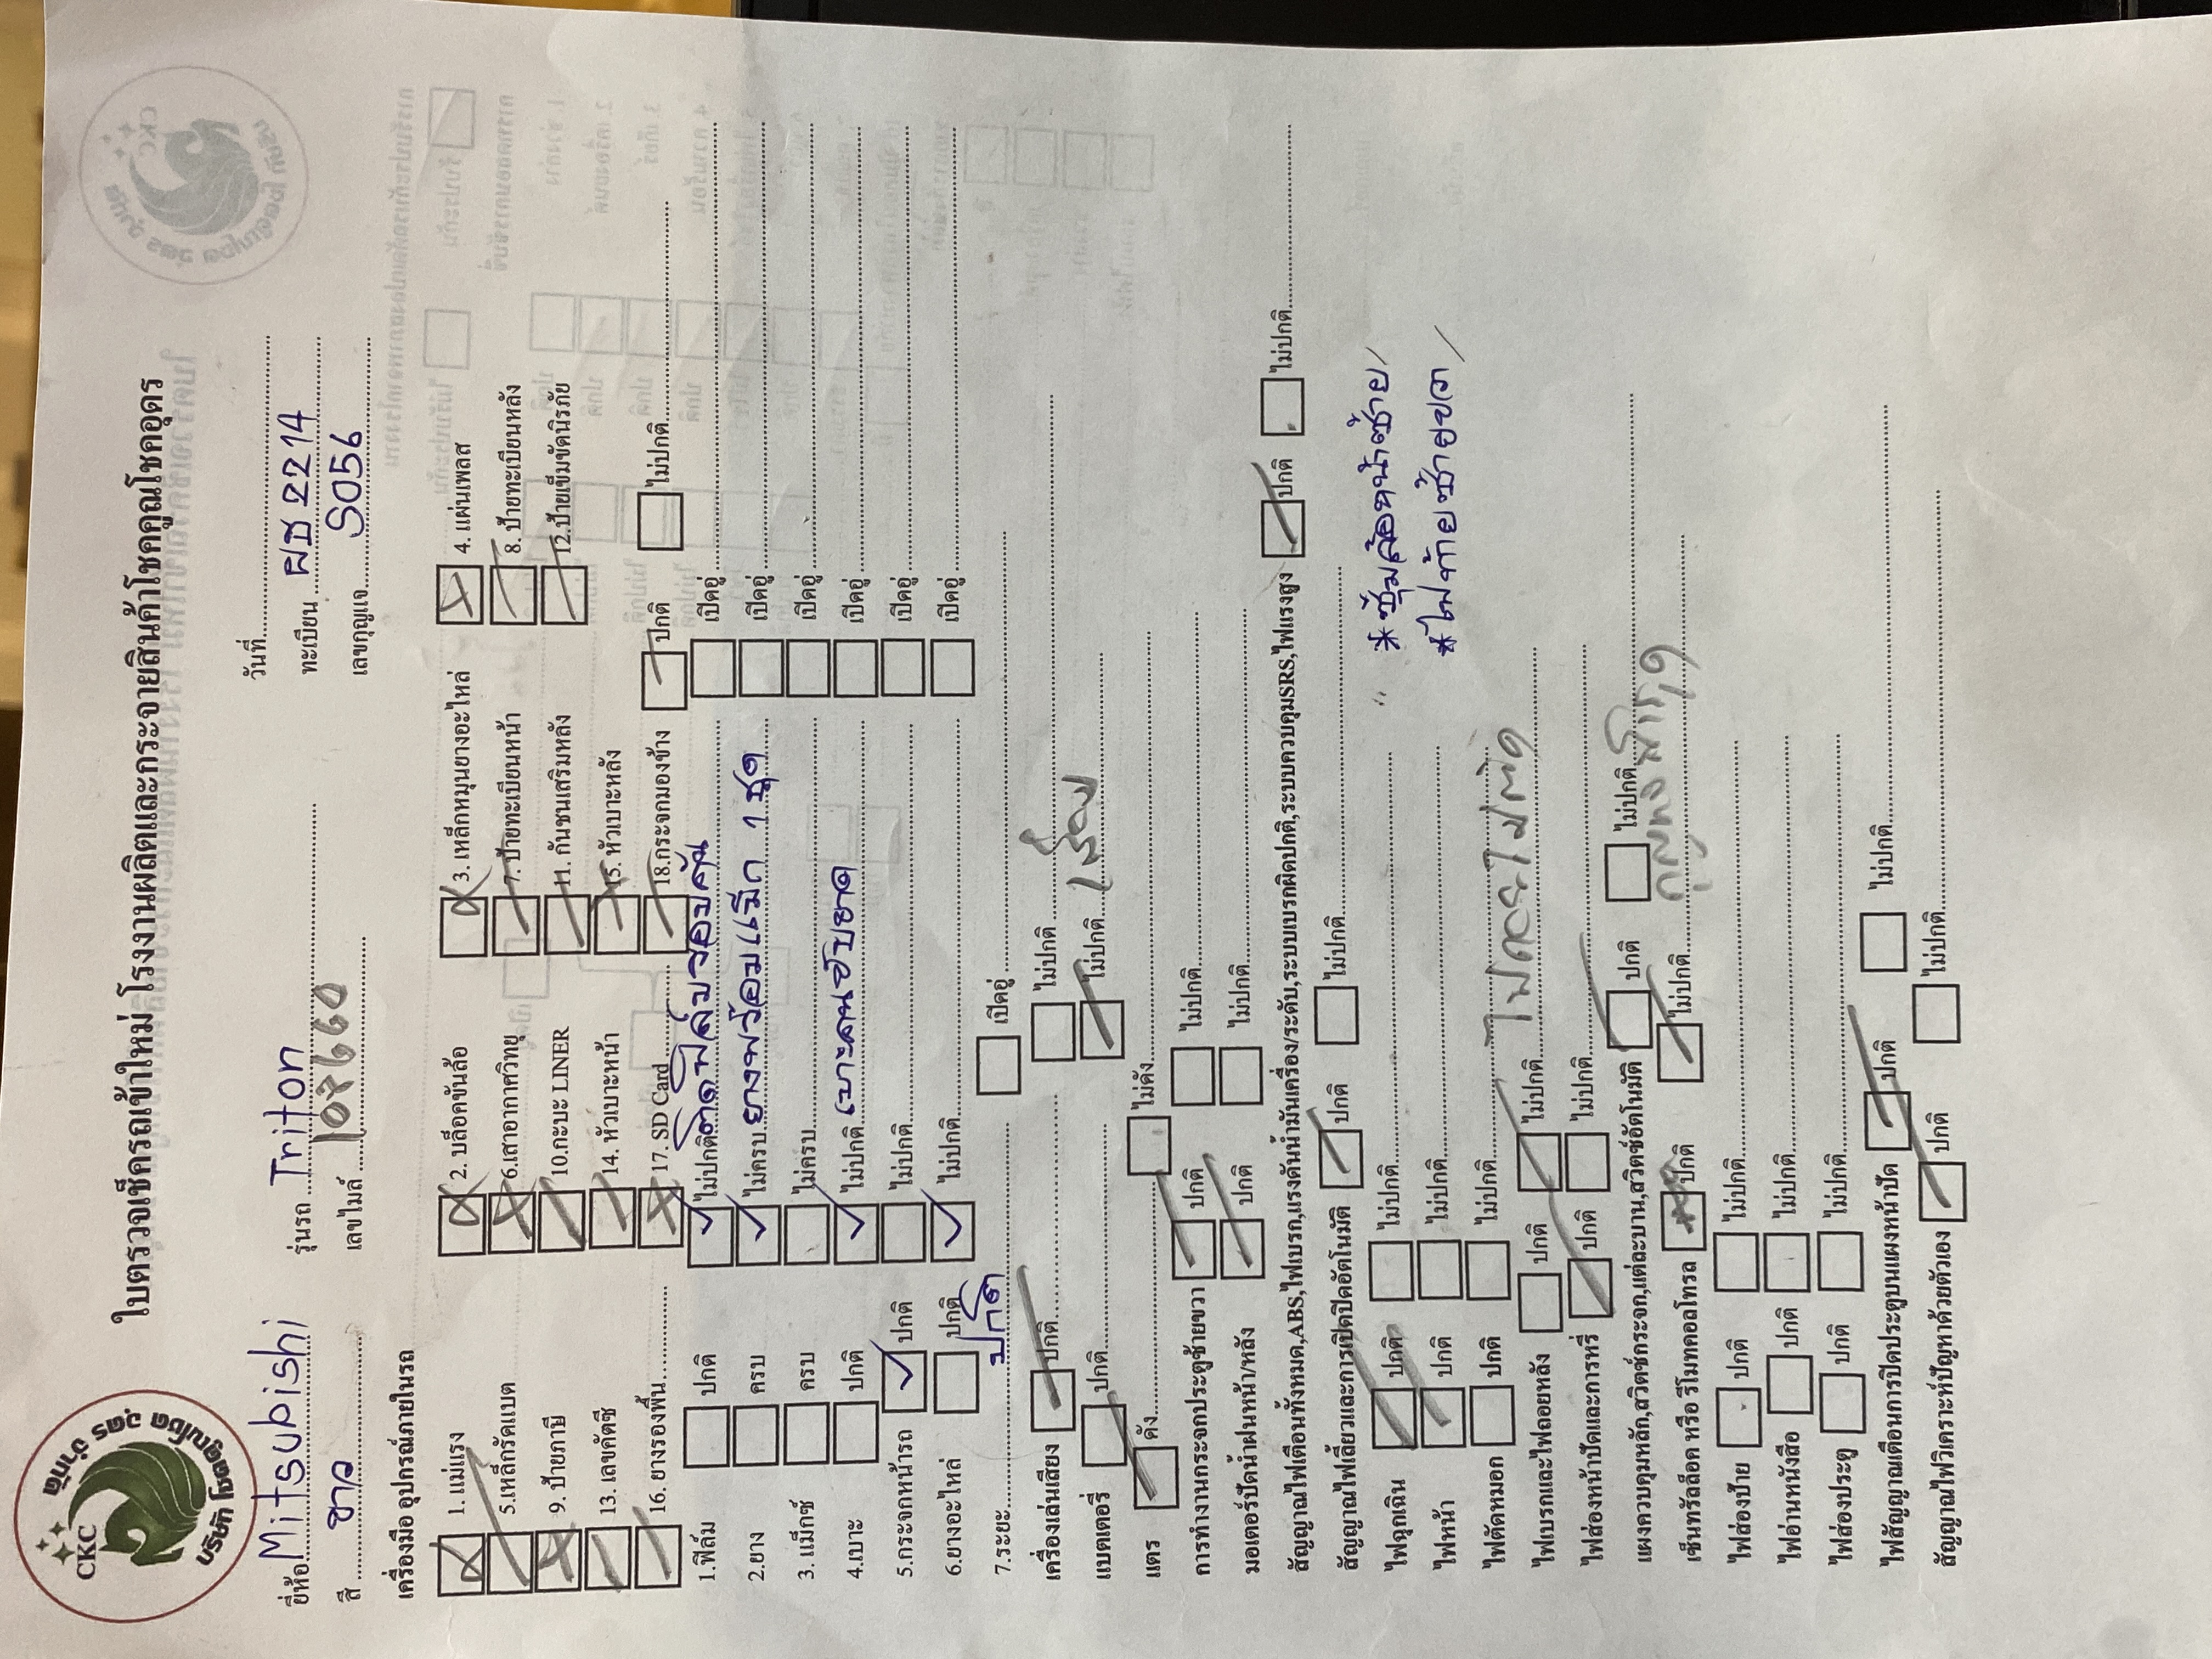 CKC
บริษัท โชคคูณโชค อุดร จำกัด
ใบตรวจเช็ครถเข้าใหม่ โรงงานผลิตและกระจายสินค้าโชคคูณโชคอุดร
วันที่
ยี่ห้อ Mitsubishi รุ่นรถ Triton ทะเบียน ผช 2214
สี ขาว เลขไมล์ เลขกุญแจ S056
เครื่องมือ อุปกรณ์ภายในรถ
1. แม่แรง 2. บล็อคขันล้อ 3. เหล็กหมุนยางอะไหล่ 4. แผ่นเพลส
5.เหล็กรัดแบต 6.เสาอากาศวิทยุ 7. ป้ายทะเบียนหน้า 8. ป้ายทะเบียนหลัง
9. ป้ายภาษี 10.กะบะ LINER 11. กันชนเสริมหลัง 12.ป้ายเข็มขัดนิรภัย
13. เลขคัตซี 14. หัวเบาะหน้า 15. หัวเบาะหลัง
16. ยางรองพื้น 17. SD Card 18.กระจกมองข้าง ปกติ ไม่ปกติ
1.ฟิล์ม ปกติ ไม่ปกติ ติดฟิล์มรอบคัน เปิดอู่
2.ยาง ครบ ไม่ครบ ยางพร้อมแม็ก 1 ชุด เปิดอู่
3. แม็กซ์ ครบ ไม่ครบ เปิดอู่
4.เบาะ ปกติ ไม่ปกติ เบาะคนขับขาด เปิดอู่
5.กระจกหน้ารถ ปกติ ไม่ปกติ เปิดอู่
6.ยางอะไหล่ ปกติ ไม่ปกติ เปิดอู่
7.ระยะ ปกติ เปิดอู่
เครื่องเล่นเสียง ปกติ ไม่ปกติ
แบตเตอรี่ ปกติ ไม่ปกติ เสื่อม
แตร ดัง ไม่ดัง
การทำงานกระจกประตูซ้ายขวา ปกติ ไม่ปกติ
มอเตอร์ปัดน้ำฝนหน้า/หลัง ปกติ ไม่ปกติ
สัญญาณไฟเตือนทั้งหมด,ABS,ไฟเบรก,แรงดันน้ำมันเครื่อง/ระดับ,ระบบเบรกผิดปกติ,ระบบควบคุมSRS,ไฟแรงสูง ปกติ ไม่ปกติ
สัญญาณไฟเลี้ยวและการเปิดปิดอัตโนมัติ ปกติ ไม่ปกติ
ไฟฉุกเฉิน ปกติ ไม่ปกติ * ซุ้มล้อหน้าซ้าย/
ไฟหน้า ปกติ ไม่ปกติ * ไฟท้ายซ้ายขวา /
ไฟตัดหมอก ปกติ ไม่ปกติ
ไฟเบรกและไฟถอยหลัง ปกติ ไม่ปกติ
ไฟส่องหน้าปัดและการหรี่ ปกติ ไม่ปกติ
แผงควบคุมหลัก,สวิตซ์กระจก,แต่ละบาน,สวิตช์อัตโนมัติ ปกติ ไม่ปกติ
เซ็นทรัลล็อค หรือ รีโมทคอลโทรล ปกติ ไม่ปกติ
ไฟส่องป้าย ปกติ ไม่ปกติ
ไฟอ่านหนังสือ ปกติ ไม่ปกติ
ไฟส่องประตู ปกติ ไม่ปกติ
ไฟสัญญาณเตือนการปิดประตูบนแผงหน้าปัด ปกติ ไม่ปกติ
สัญญาณไฟวิเคราะห์ปัญหาด้วยตัวเอง ปกติ ไม่ปกติ